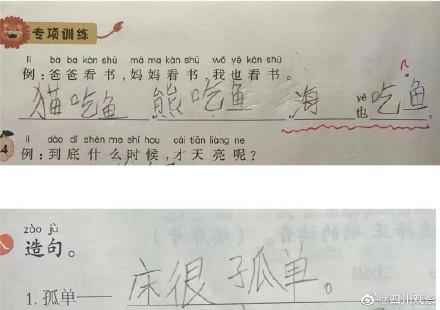 专项训练
lì bà ba kàn shū mā ma kàn shū wǒ yě kàn shū
例：爸爸看书，妈妈看书，我也看书。
猫吃鱼，熊吃鱼，海 yě 也 吃鱼。
4 lì dào dǐ shén me shí hou cái tiān liàng ne
例：到底什么时候，才天亮呢？
zào jù
八 造句。
1. 孤单——床很孤单。
@四川观察